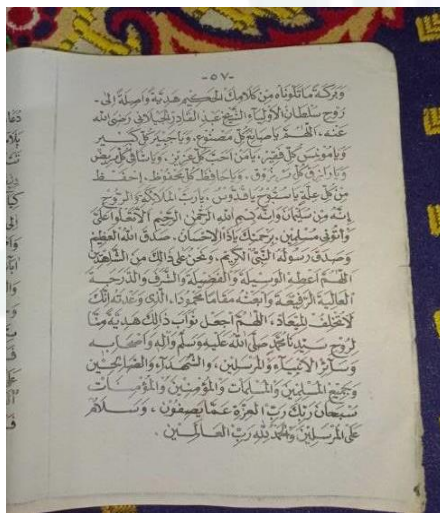 -٥٧-
وَبَرَكَةَ مَا تَلَوْنَاهُ مِنْ كَلَامِكَ الْحَكِيْمِ هَدِيَّةً وَاصِلَةً اِلَى -
رُوْحِ سُلْطَانِ الْاَوْلِيَآءِ الشَّيْخِ عَبْدِ الْقَادِرِ الْجَيْلَانِى رَضِيَ اللهُ
عَنْهُ، اَللّٰهُمَّ يَاصَانِعَ كُلِّ مَصْنُوْعٍ، وَيَاجَبِيْرَ كُلِّ كَسِيْرٍ
وَيَامُوْنِسَ كُلِّ فَقِيْرٍ، يَامَنْ اَحَبَّ كُلَّ عَزِيْزٍ، وَيَاشَافِىَ كُلِّ مَرِيْضٍ
وَيَارَازِقَ كُلِّ مَرْزُوْقٍ، وَيَاحَافِظَ كُلِّ مَحْفُوْظٍ، اِحْفَظْ
مِنْ كُلِّ عِلَّةٍ يَاسُبُّوْحُ يَاقُدُّوْسُ، يَارَبَّ الْمَلَآئِكَةِ وَالرُّوْحِ
اِنَّهُ مِنْ سُلَيْمَانَ وَاِنَّهُ بِسْمِ اللهِ الرَّحْمٰنِ الرَّحِيْمِ اَلَّا تَعْلُوْا عَلَيَّ
وَأْتُوْنِى مُسْلِمِيْنَ، بِرَحْمَتِكَ يَاذَا الْاِحْسَانِ، صَدَقَ اللهُ الْعَظِيْمُ
وَصَدَقَ رَسُوْلُهُ النَّبِىُّ الْكَرِيْمُ، وَنَحْنُ عَلَى ذَالِكَ مِنَ الشَّاهِدِيْنَ
اَللّٰهُمَّ اَعْطِهِ الْوَسِيْلَةَ وَالْفَضِيْلَةَ وَالشَّرَفَ وَالدَّرَجَةَ
الْعَالِيَةَ الرَّفِيْعَةَ وَابْعَثْهُ مَقَامًا مَحْمُوْدًا، الَّذِى وَعَدْتَهُ اِنَّكَ
لَا تُخْلِفُ الْمِيْعَادَ، اَللّٰهُمَّ اجْعَلْ ثَوَابَ ذَالِكَ هَدِيَّةً مِنَّا
لِرُوْحِ سَيِّدِنَا مُحَمَّدٍ صَلَّى اللهُ عَلَيْهِ وَسَلَّمَ وَآلِهِ وَاَصْحَابِهِ
وَسَآئِرِ الْاَنْبِيَآءِ وَالْمُرْسَلِيْنَ، وَالشُّهَدَآءِ وَالصَّالِحِيْنَ
وَجَمِيْعِ الْمُسْلِمِيْنَ وَالْمُسْلِمَاتِ وَالْمُؤْمِنِيْنَ وَالْمُؤْمِنَاتِ
سُبْحَانَ رَبِّكَ رَبِّ الْعِزَّةِ عَمَّا يَصِفُوْنَ، وَسَلَامٌ
عَلَى الْمُرْسَلِيْنَ وَالْحَمْدُ لِلّٰهِ رَبِّ الْعَالَمِيْنَ.